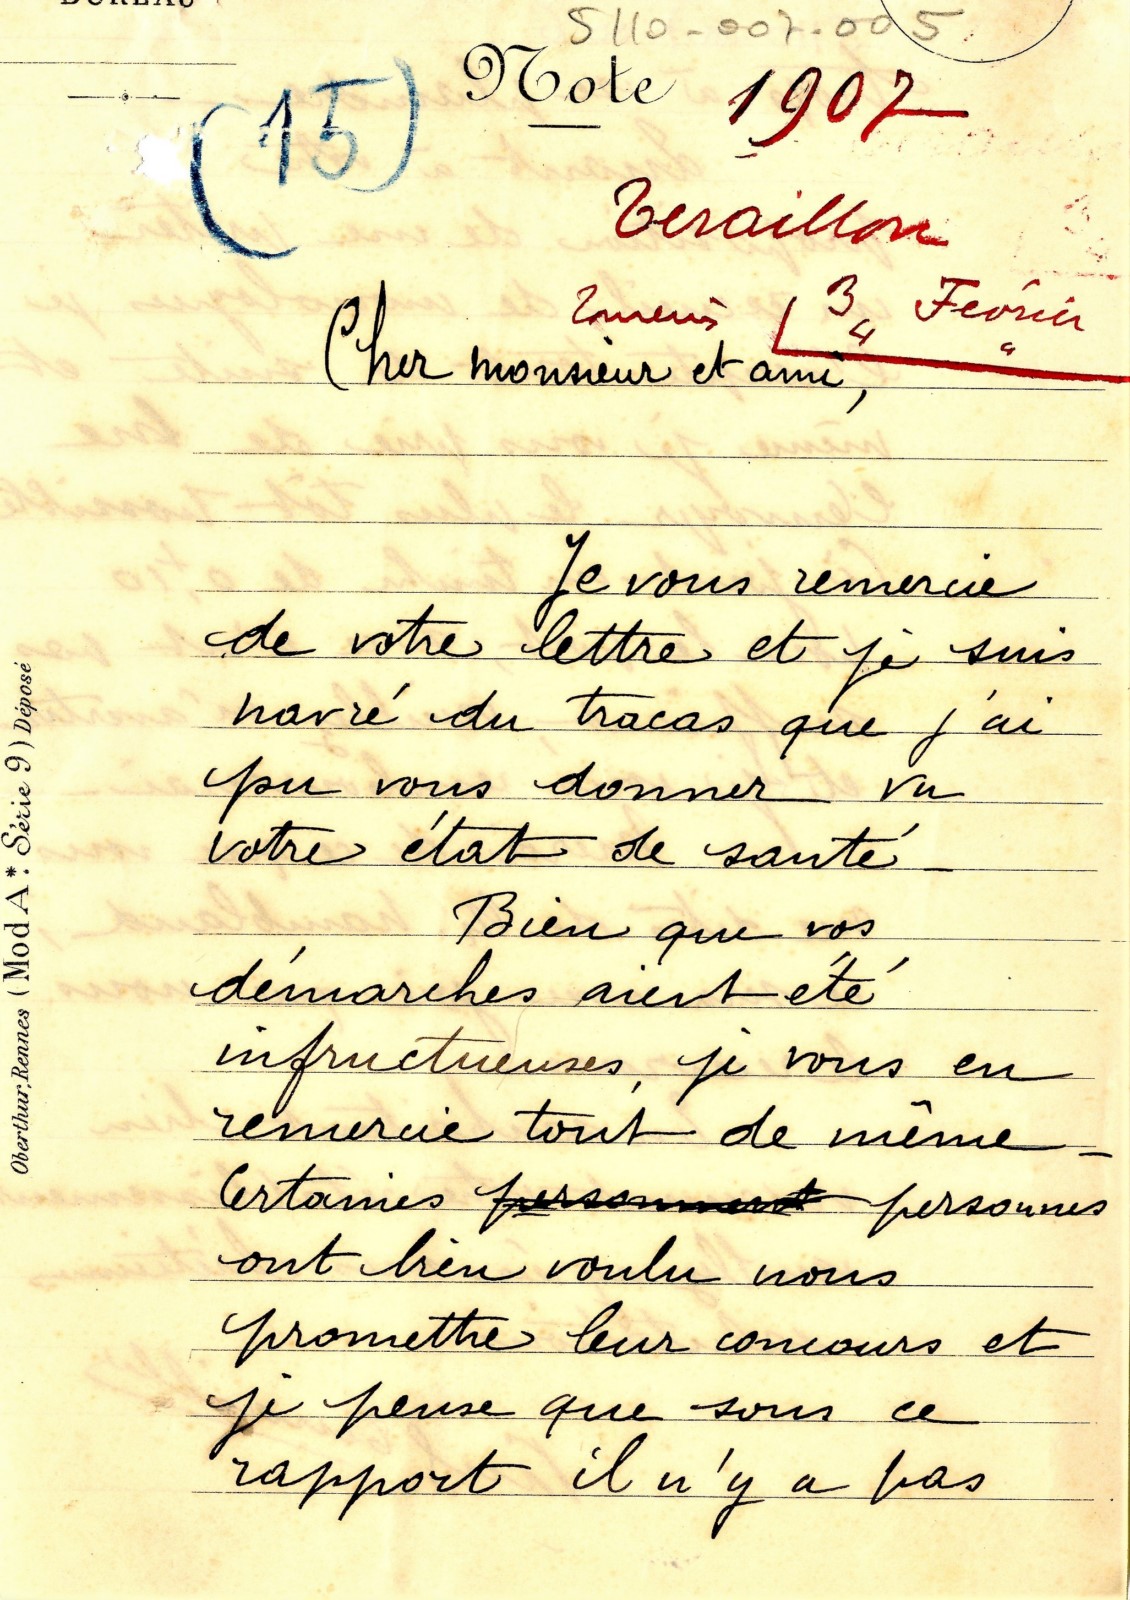 BUREAU
5110-007.005
Note
1907
(15)
Teraillon
3 Février
4 "
Cher monsieur et ami,
Je vous remercie
de votre lettre et je suis
navré du tracas que j'ai
pu vous donner vu
votre état de santé_
Bien que vos
démarches aient été
infructueuses, je vous en
remercie tout de même_
Certaines personnent personnes
ont bien voulu nous
promettre leur concours et
je pense que sous ce
rapport il n'y a pas
Oberthur, Rennes (Mod A* : Série 9) Déposé